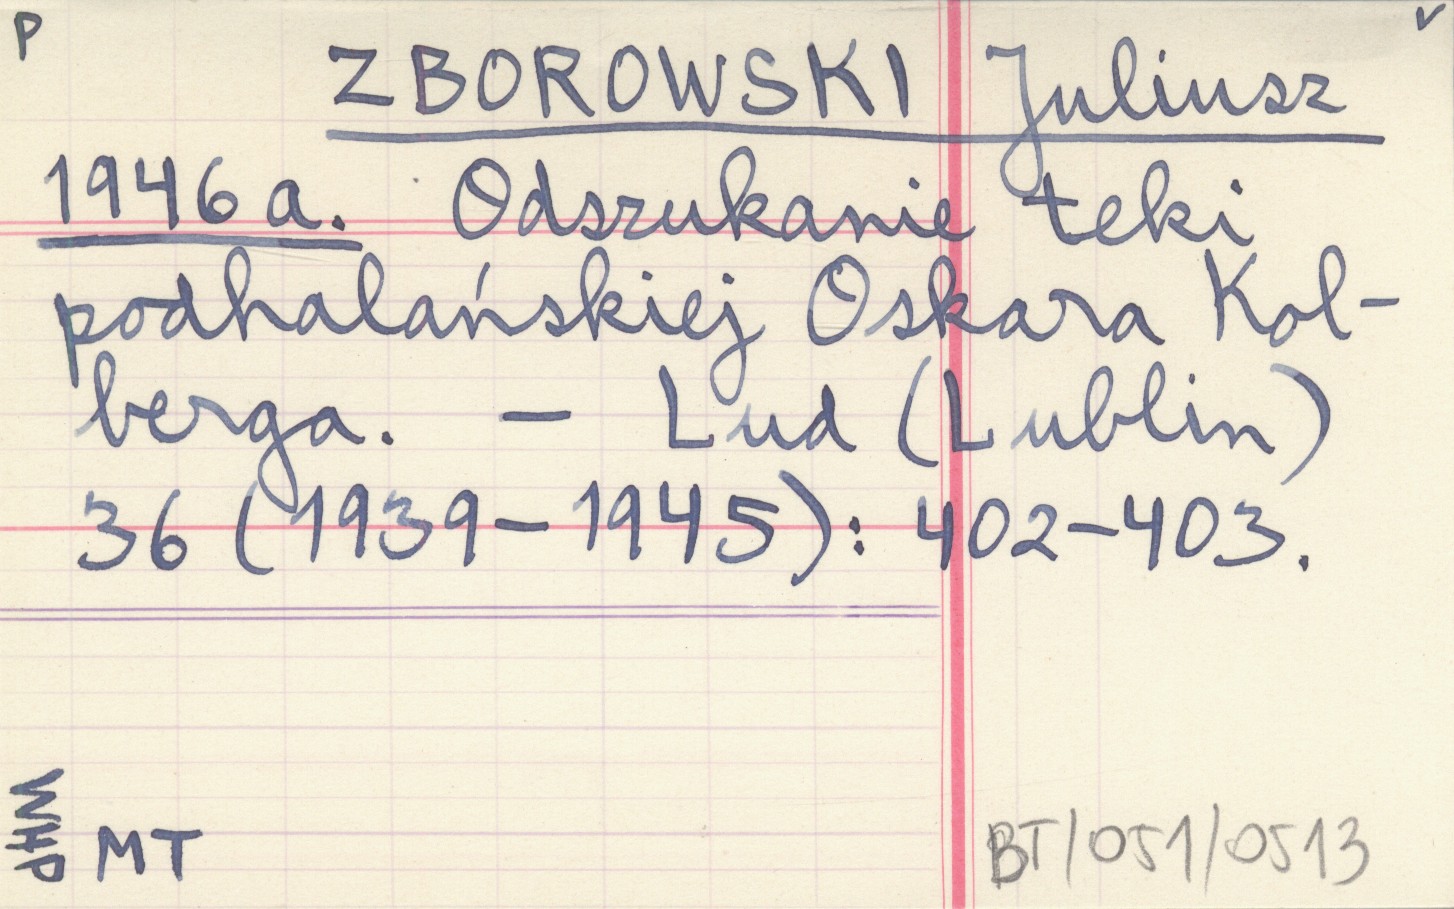 P
v
ZBOROWSKI Juliusz
1946 a. Odszukanie teki
podhalańskiej Oskara Kol-
berga. — Lud (Lublin)
36 (1939-1945): 402-403.
MT
BT/051/0513